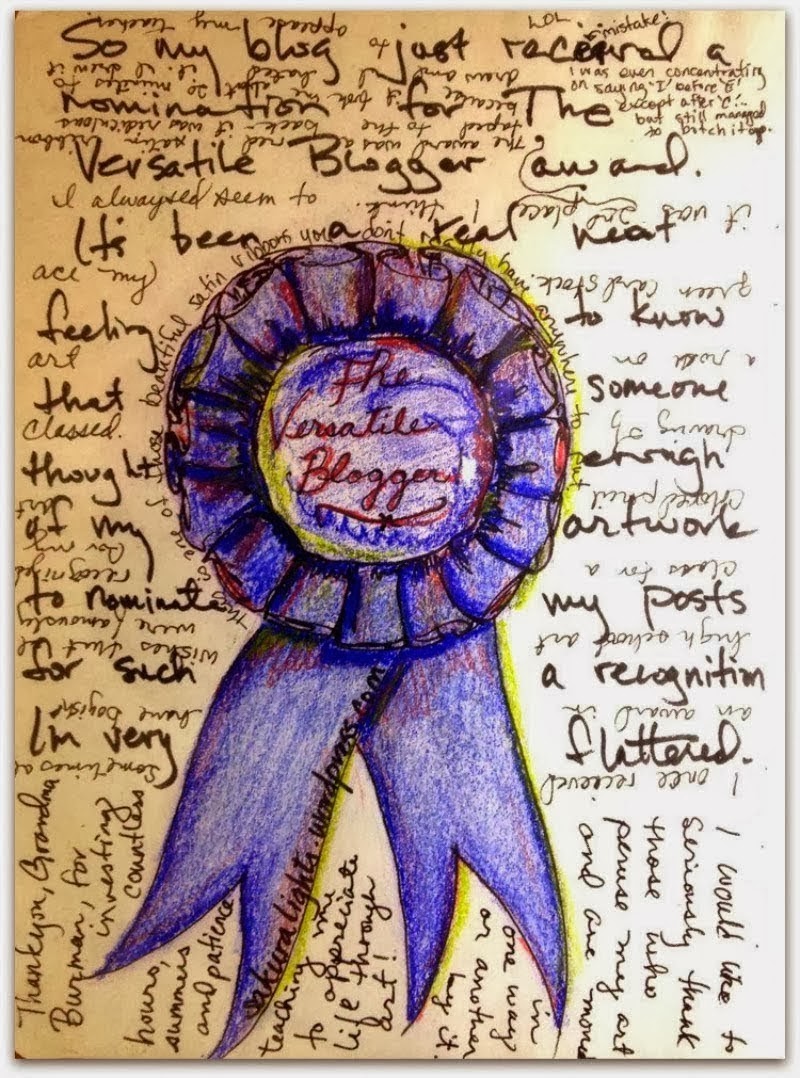 So my blog just received a
nomination for The
Versatile Blogger award.
It's been a real neat
feeling to know
that someone
thought enough
of my artwork
to nominate my posts
for such a recognition
I'm very flattered.
LOL
mistake!
I was even concentrating
on saying "I before e"
except after "c"...
but still managed
to botch it up.
I alwaysed seem to
ace my
art
classed.
The
Versatile
Blogger
sakuralights.wordpress.com
I once recieved
an award in
high school art
class for a
colored pencil
drawing of
a rose on
green card stock.
it was 2nd place
I think.
The award was a red satin ribbon
taped to the back - it was rediculous
because it took me about 20 minutes to
draw and I hated it. I drew it
to appease my teacher.
wishes that
were famously
recognized
for my
art
those beautiful satin ribbons you
Thankyou, Grandma
Burman, for
investing
countless
hours,
summers
and patience
teaching me
to appreciate
life through
art!
I would like to
seriously thank
those who
peruse my art
and are moved
in
one way
or another
by it.